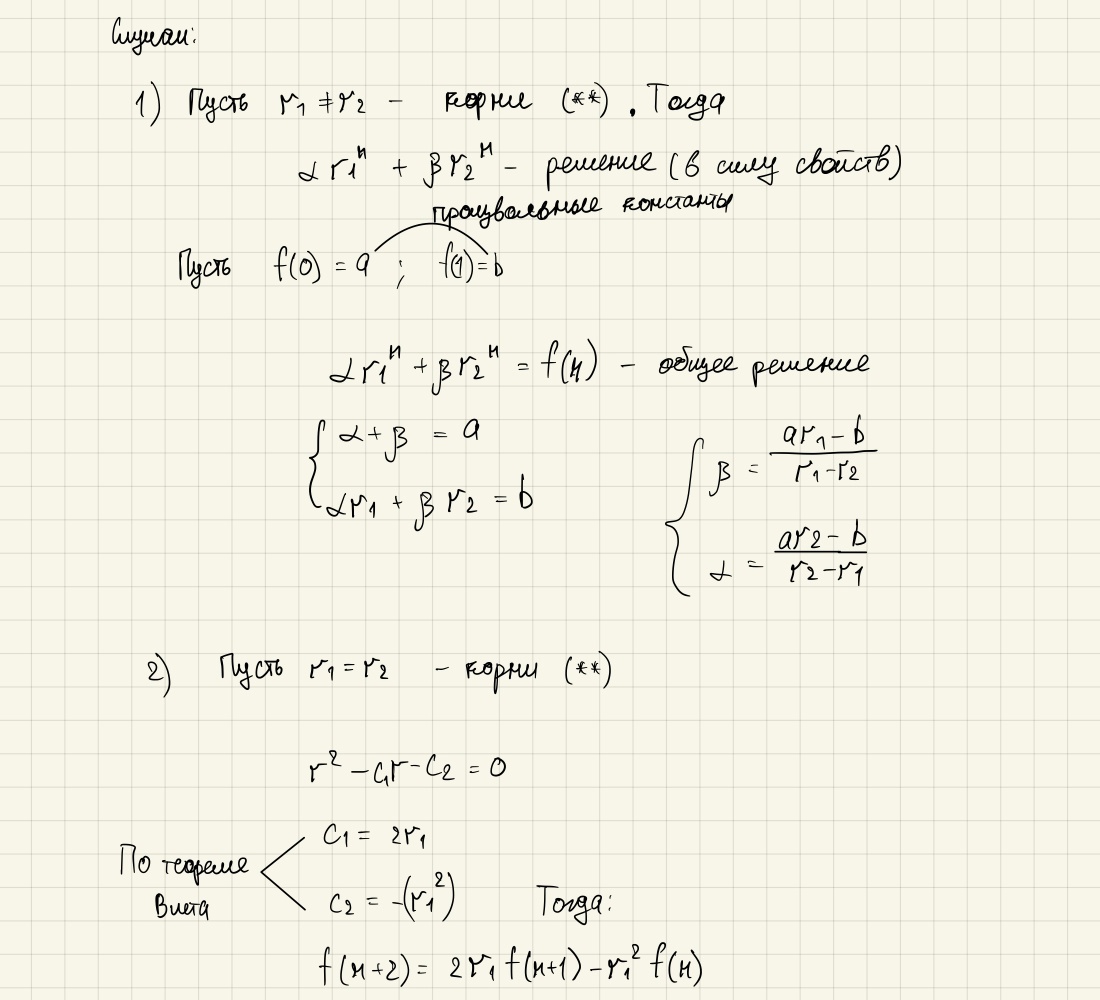 Случаи:
1) Пусть r₁ ≠ r₂ - корни (**). Тогда
αr₁ⁿ + βr₂ⁿ - решение (в силу свойств)
произвольные константы
Пусть f(0) = a ; f(1) = b
αr₁ⁿ + βr₂ⁿ = f(n) - общее решение
{ α + β = a
αr₁ + βr₂ = b
{ β = (ar₁ - b)/(r₁ - r₂)
α = (ar₂ - b)/(r₂ - r₁)
2) Пусть r₁ = r₂ - корни (**)
r² - c₁r - c₂ = 0
По теореме
Виета
c₁ = 2r₁
c₂ = -(r₁²) Тогда:
f(n+2) = 2r₁ f(n+1) - r₁² f(n)